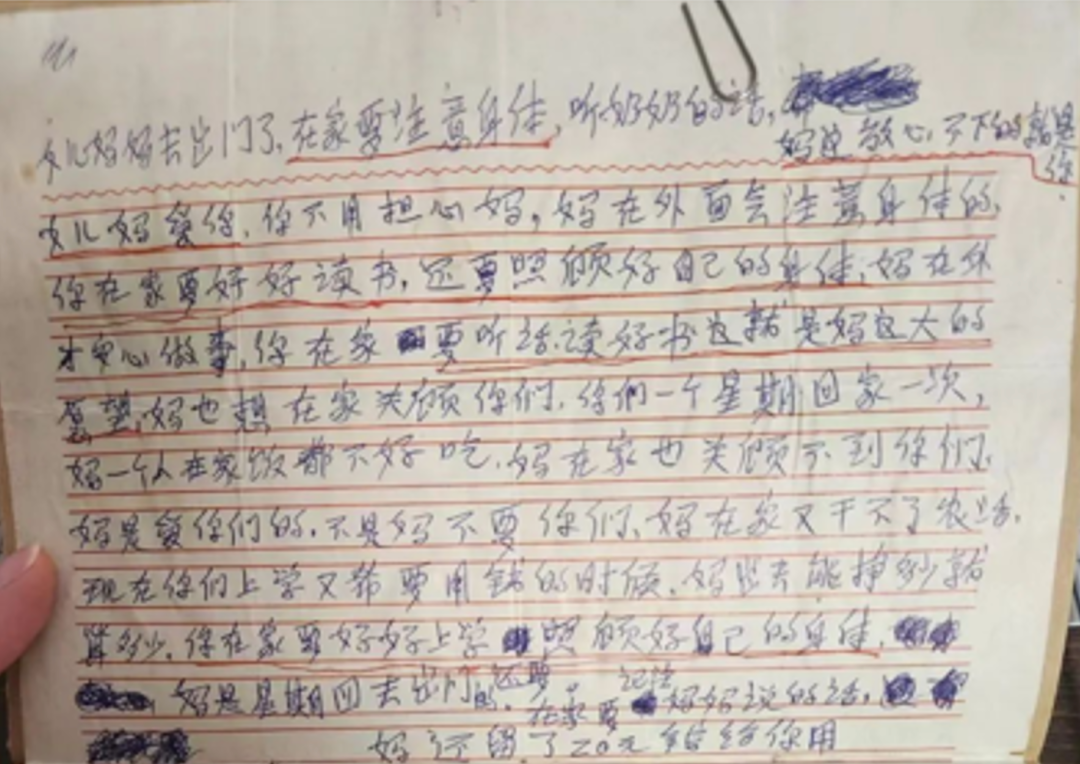 女儿妈妈去出门了,在家要注意身体,听奶奶的话,
妈这放心不下的就是你
女儿妈爱你,你不用担心妈,妈在外面会注意身体的,
你在家要好好读书,还要照顾好自己的身体,妈在外
才安心做事,你在家要听话,读好书这就是妈这大的
愿望,妈也想在家关顾你们,你们一个星期回家一次,
妈一个人在家饭都不好吃,妈在家也关顾不到你们,
妈是爱你们的,不是妈不要你们,妈在家又干不了农活,
现在你们上学又都要用钱的时候,妈出去能挣多少就
算多少,你在家要好好上学照顾好自己的身体,
妈是星期四去出门的,还要
在家要记住妈妈说的话,
妈还留了20元给你用